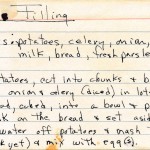 Filling
s: potatoes, celery, onion,
milk, bread, fresh parsle
tatoes, cut into chunks & b
onion & celery (diced) in lot
ad, cubed, into a bowl & p
lk on the bread & set asid
water off potatoes & mash
yet) & mix with egg(s).